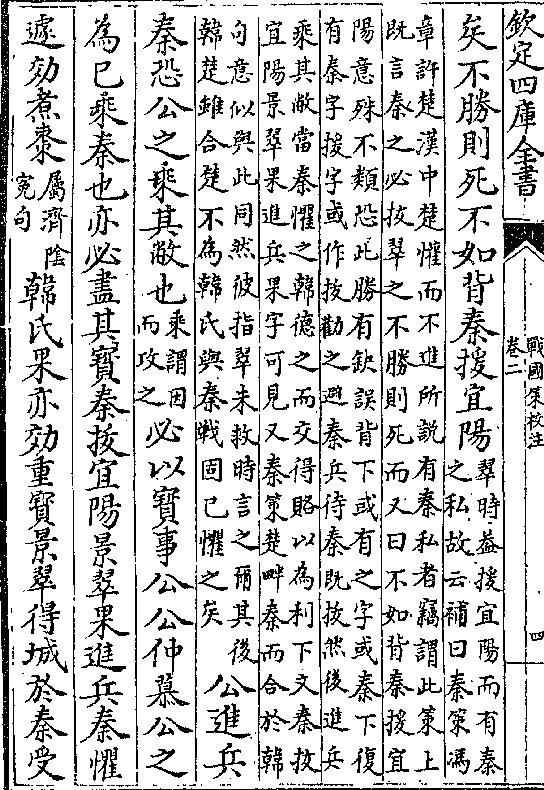 欽定四庫全書
戰國策校注
卷二
四
矣不勝則死不如背秦援宜陽
翠時蓋援宜陽而有秦
之私故云補曰秦策馮
章許楚漢中楚懼而不進所説有秦私者竊謂此策上
既言秦之必拔翠之不勝則死而又曰不如背秦援宜
陽意殊不類恐此勝有缺誤背下或有之字或秦下復
有秦字援字或作拔勸之避秦兵待秦既拔然後進兵
乘其敝當秦懼之韓德之而交得賂以為利下文秦拔
宜陽景翠果進兵果字可見又秦策楚畔秦而合於韓
句意似與此同然彼指翠未救時言之爾其後
韓楚雖合楚不為韓氏與秦戰固已懼之矣
公進兵
秦恐公之乘其敝也
乘謂因
而攻之
必以寶事公公仲慕公之
為己乘秦也亦必盡其寶秦拔宜陽景翠果進兵秦懼
遽効煮棗
屬濟陰
宛句
韓氏果亦効重寶景翠得城於秦受